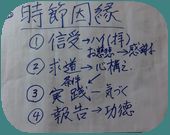 時節因縁
① 信受→ハイ(拝)
お慈悲→感謝
② 求道→心構え
条件
③ 実践—気づく
④ 報告→功徳